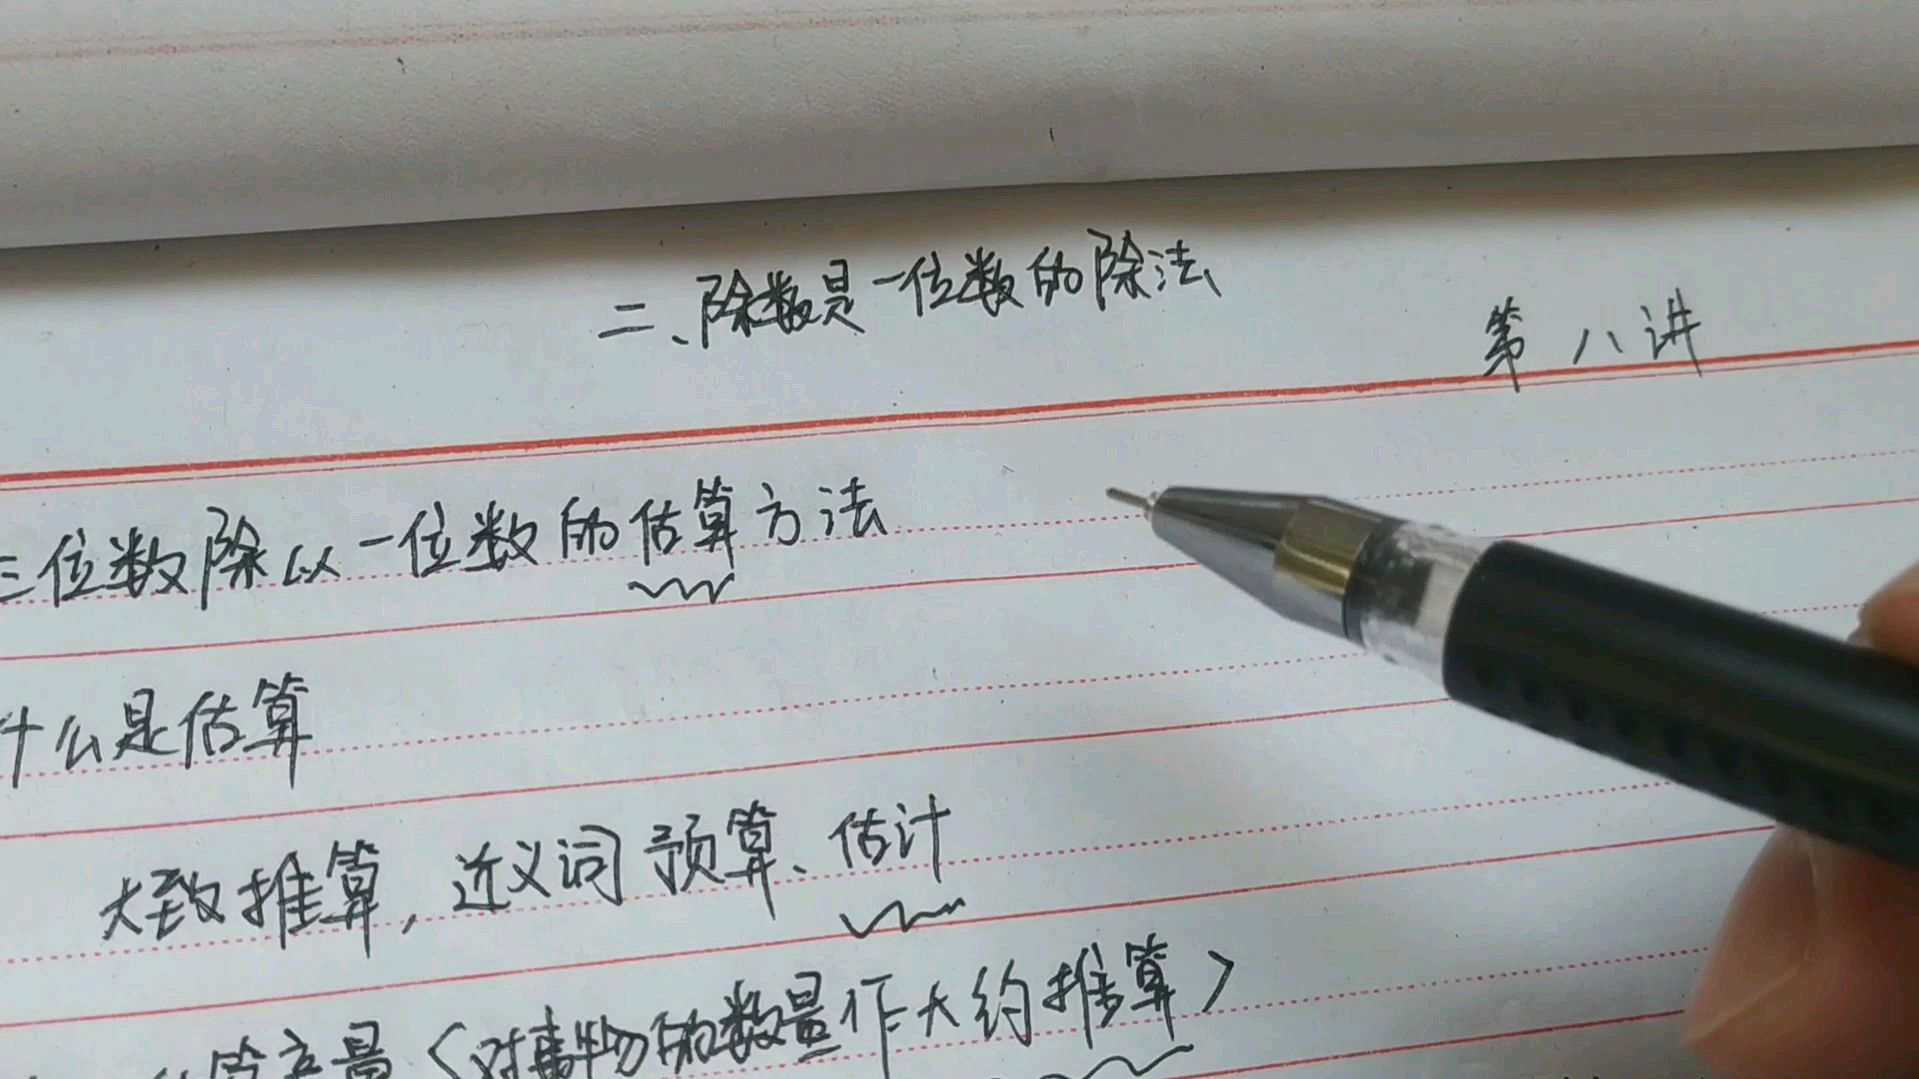 二、除数是一位数的除法
第八讲
三位数除以一位数的估算方法
什么是估算
大致推算,近义词预算、估计
算产量〈对事物的数量作大约推算〉